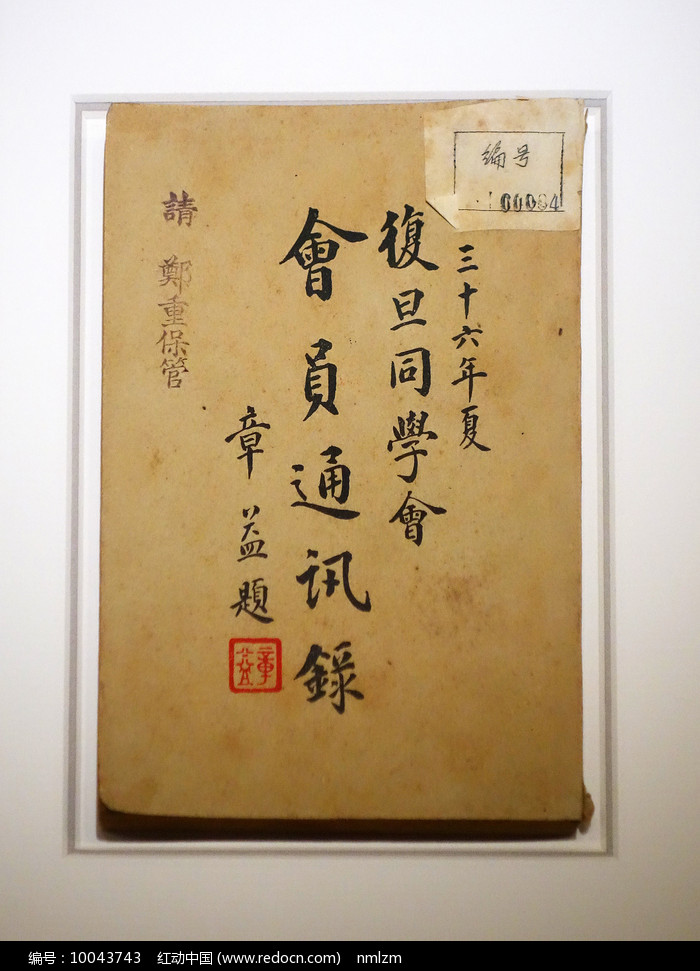 三十六年夏
復旦同學會
會員通訊錄
章益題
章益
請 鄭重保管
编号
00064
编号：10043743 红动中国 (www.redocn.com) nmlzm